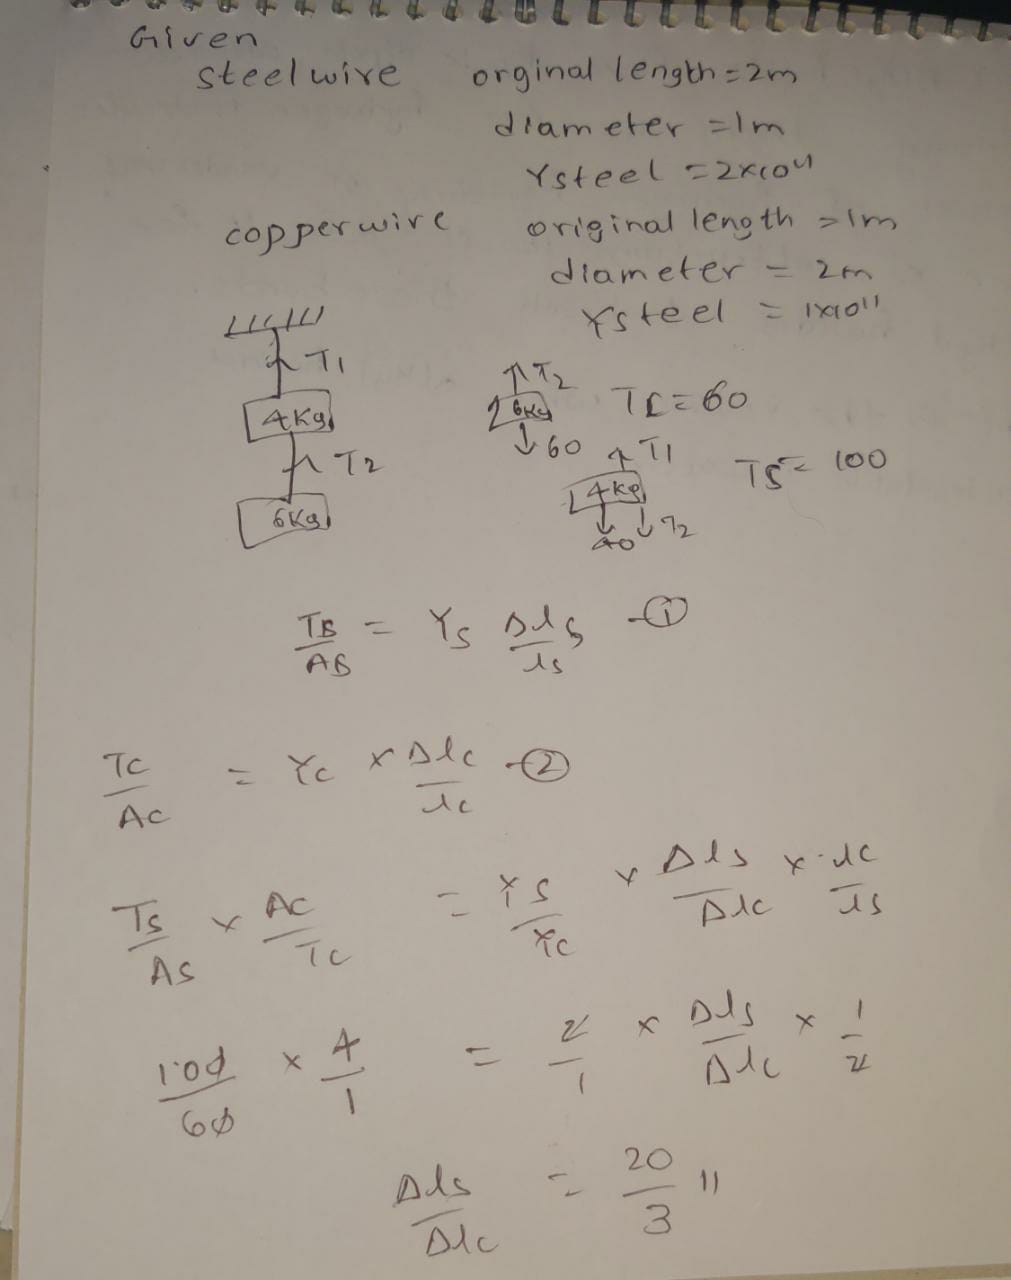 Given
steel wire orginal length = 2m
diameter = 1m
Ysteel = 2x10¹¹
copper wire original length = 1m
diameter = 2m
Ysteel = 1x10¹¹
T1
4Kg
T2
6Kg
T2
6Kg
60
TC = 60
T1
4Kg
40 T2
TS = 100
TS/AS = YS Δls/ls - ①
TC/AC = YC x Δlc/lc - ②
TS/AS x AC/TC = YS/YC x Δls/Δlc x lc/ls
100/60 x 4/1 = 2/1 x Δls/Δlc x 1/2
Δls/Δlc = 20/3 //